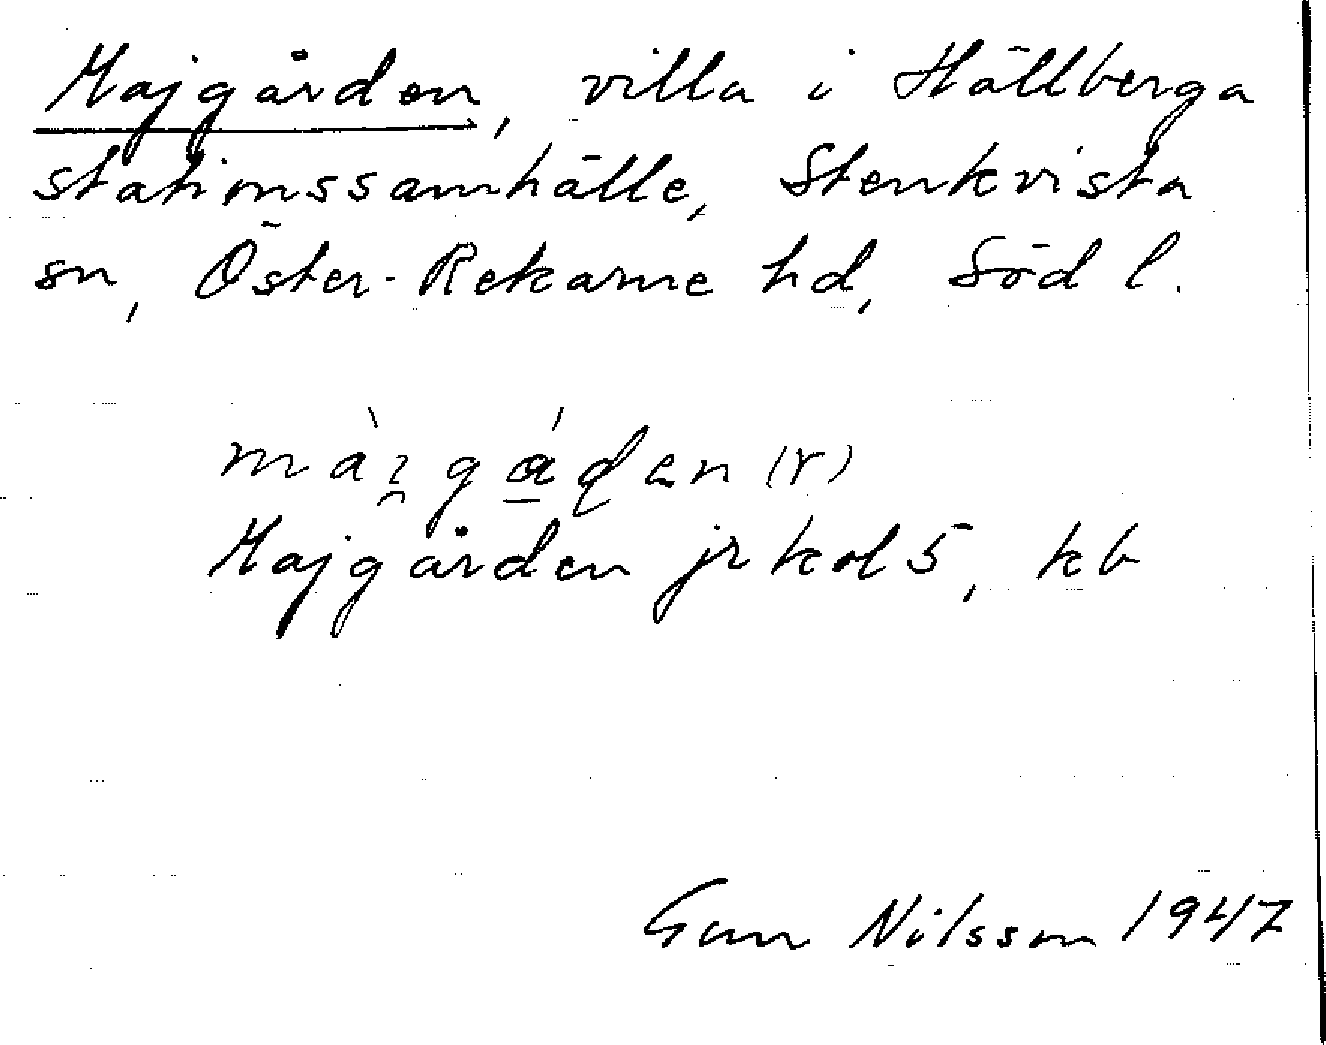 Majgården, villa i Hällberga
stationssamhälle, Stenkvista
sn, Öster-Rekarne hd, Söd l.
màı̯gá̱ɖen (r)
Majgården jrkol 5, kb
Gun Nilsson 1947